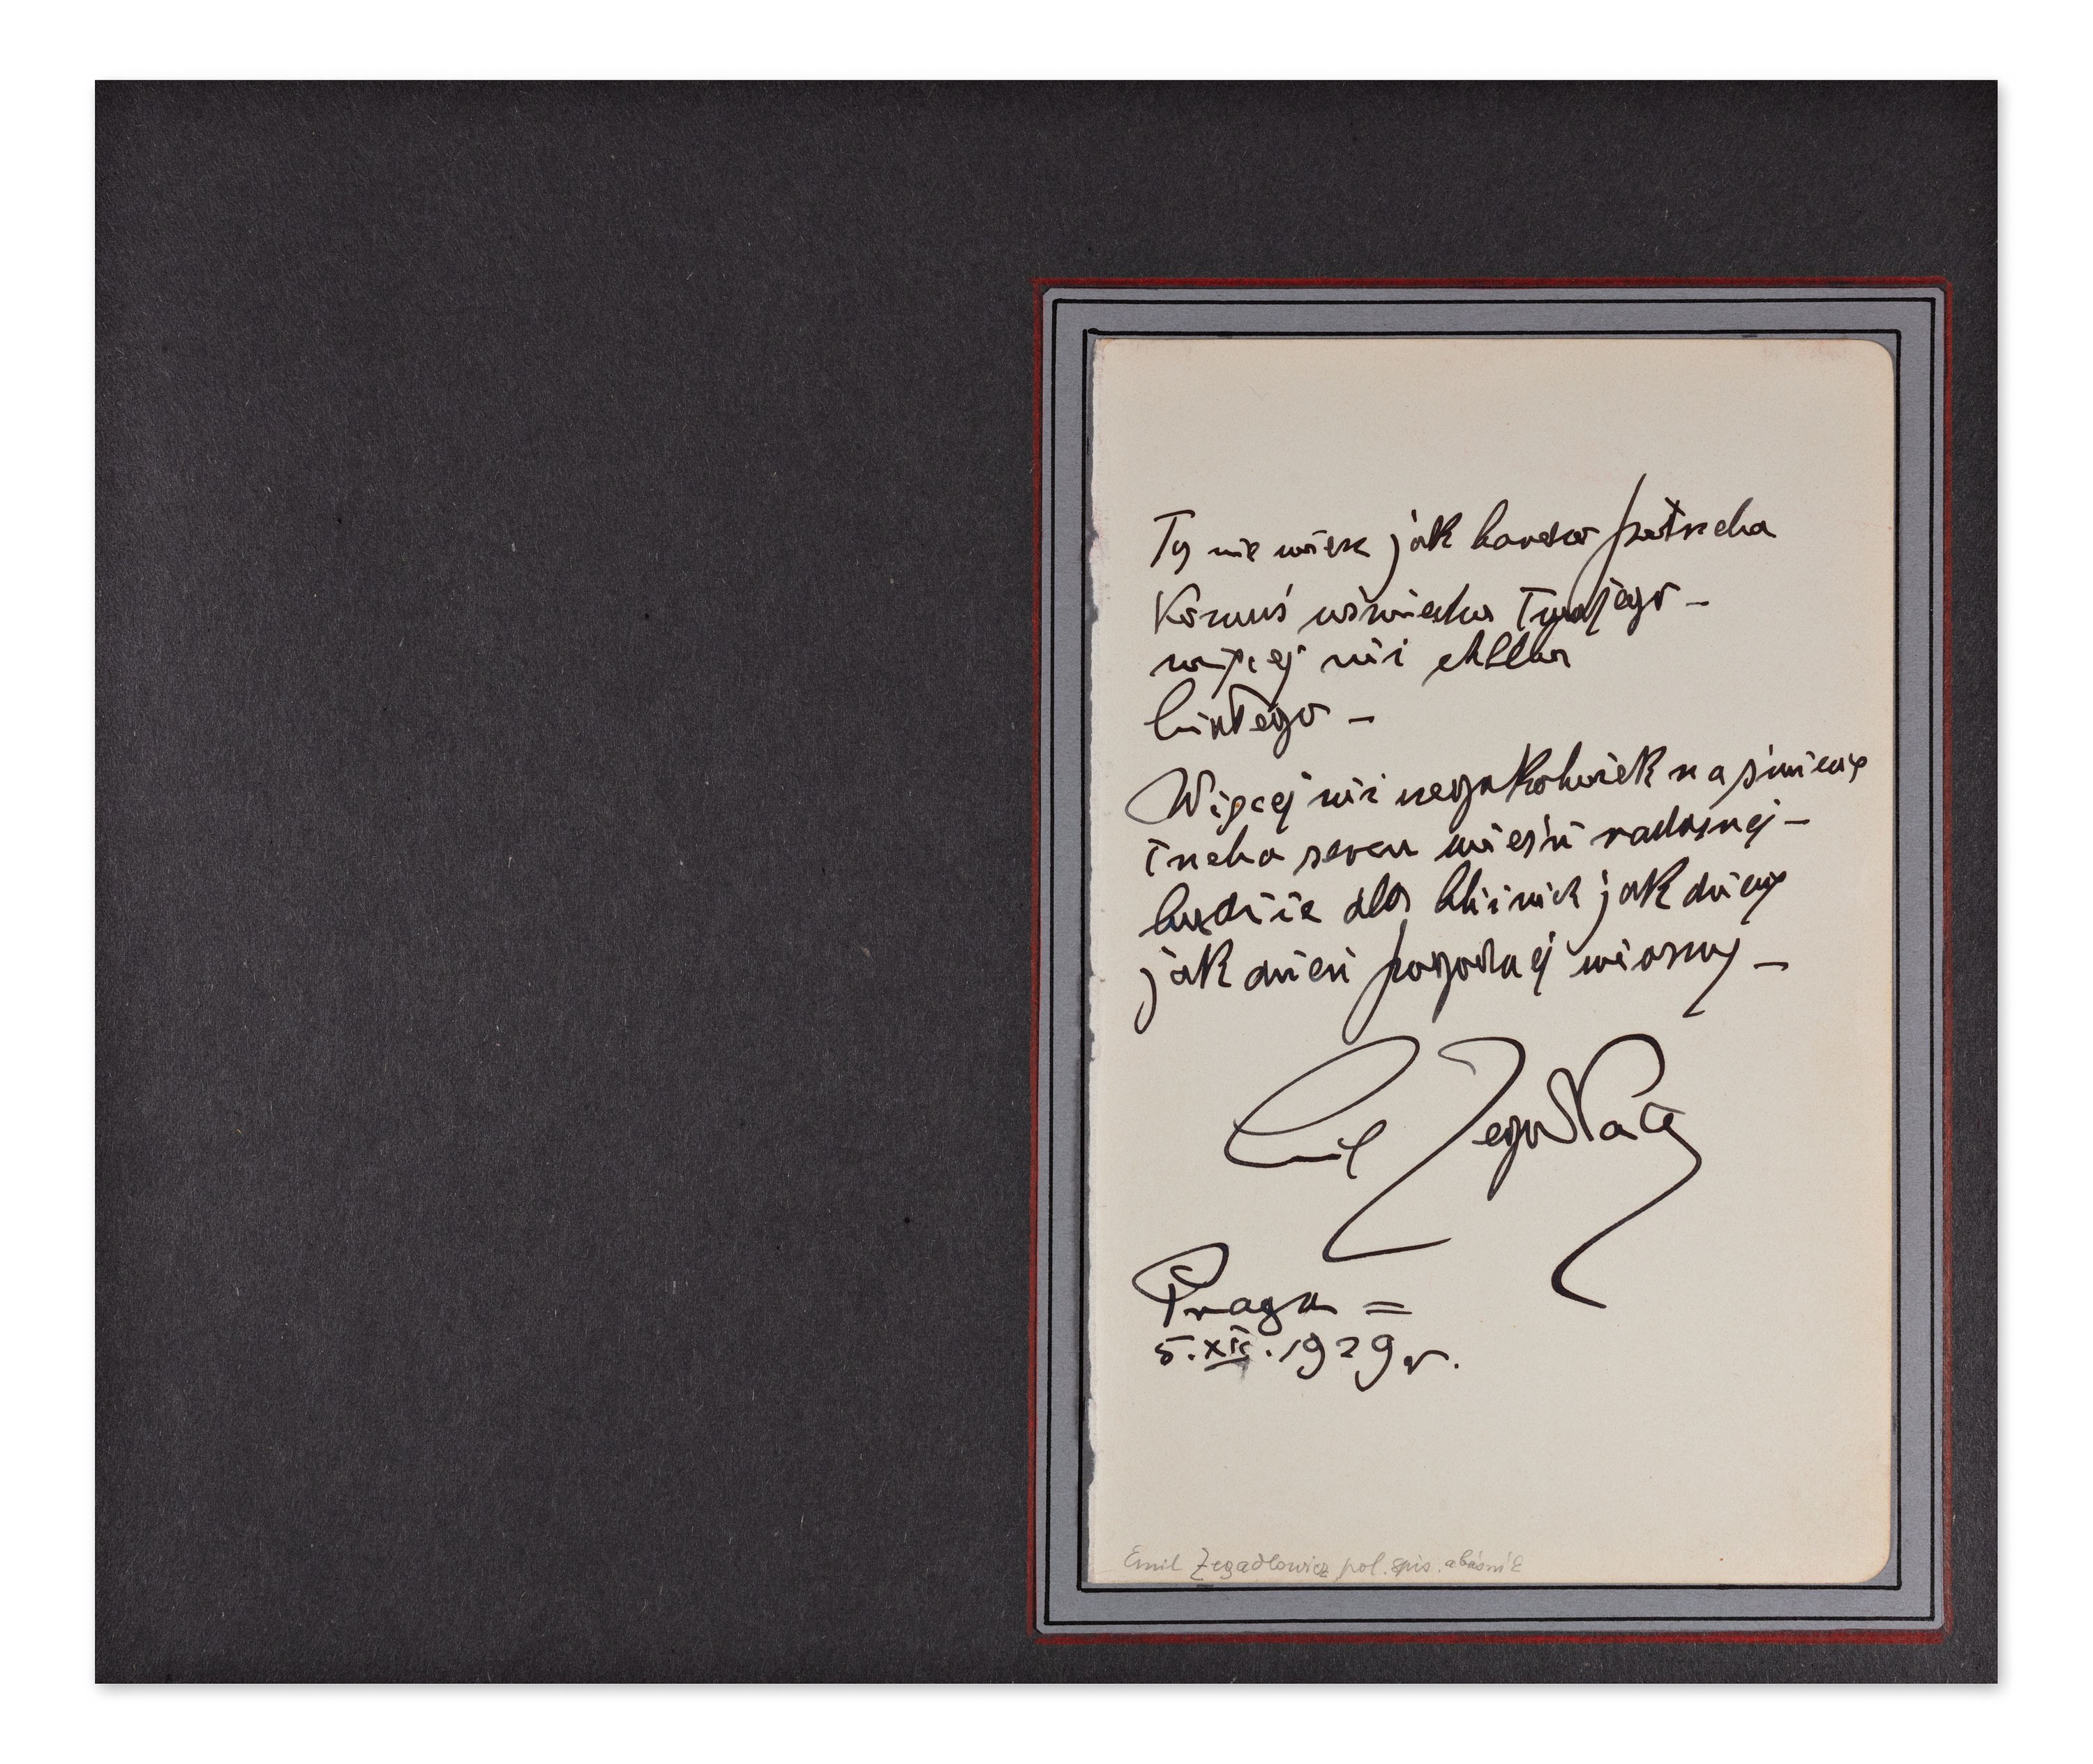 Ty nie wiesz jak bardzo potrzeba
Komuś uśmiechu Twojego –
więcej niż chleba
białego –
Więcej niż czegokolwiek na świecie
trzeba sercu wieści radosnej –
bądźcie dla bliźnich jak dzieci
jak dzień pogodnej wiosny –
Emil Zegadłowicz
Praga =
5.XII.1929 r.
Emil Zegadlowicz pol. spis. a básník